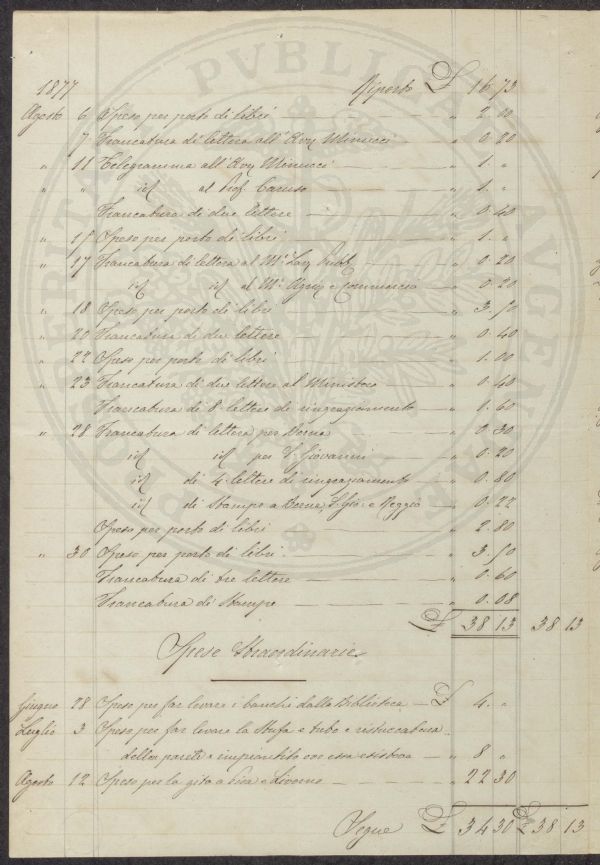 1877 Riporto £ 16.73
Agosto 6 Spese per porto di libri — " 2.00
7 Francatura di lettera all'Avv Minucci — " 0.20
" 11 Telegramma all'Avv Minucci — " 1. "
" " id al Prof. Caruso — " 1. "
Francatura di due lettere — " 0.40
" 15 Spese per porto di libri — " 1. "
" 17 Francatura di lettera al Mo Lav Pubb — " 0.20
id id al Mo Agric e Commercio — " 0.20
" 18 Spese per porto di libri — " 3.50
" 20 Francatura di due lettere — " 0.40
" 22 Spese per porto di libri — " 1.00
" 23 Francatura di due lettere al Ministero — " 0.40
Francatura di 8 lettere di ringraziamento — " 1.60
" 28 Francatura di lettera per Berna — " 0.30
id id per S. Giovanni — " 0.20
id di 4 lettere di ringraziamento — " 0.80
id di Stampe a Berna, S. Gio. e Reggio — " 0.22
Spese per porto di libri — " 2.80
" 30 Spese per porto di libri — " 3.50
Francatura di tre lettere — " 0.60
Francatura di Stampe — " 0.08
£ 38 13 38 13
Spese Straordinarie
Giugno 28 Spese per far levare i banchi dalla Biblioteca — £ 4. "
Luglio 3 Spese per far levare la Stufa e tubo e ristuccatura
della parete e impiantito ove essa esisteva — " 8 "
Agosto 12 Spese per la gita a Pisa e Livorno — " 22 30
Segue £ 34 30 £ 38 13
PVBLICAE AVGENDAE PROSPERITATI